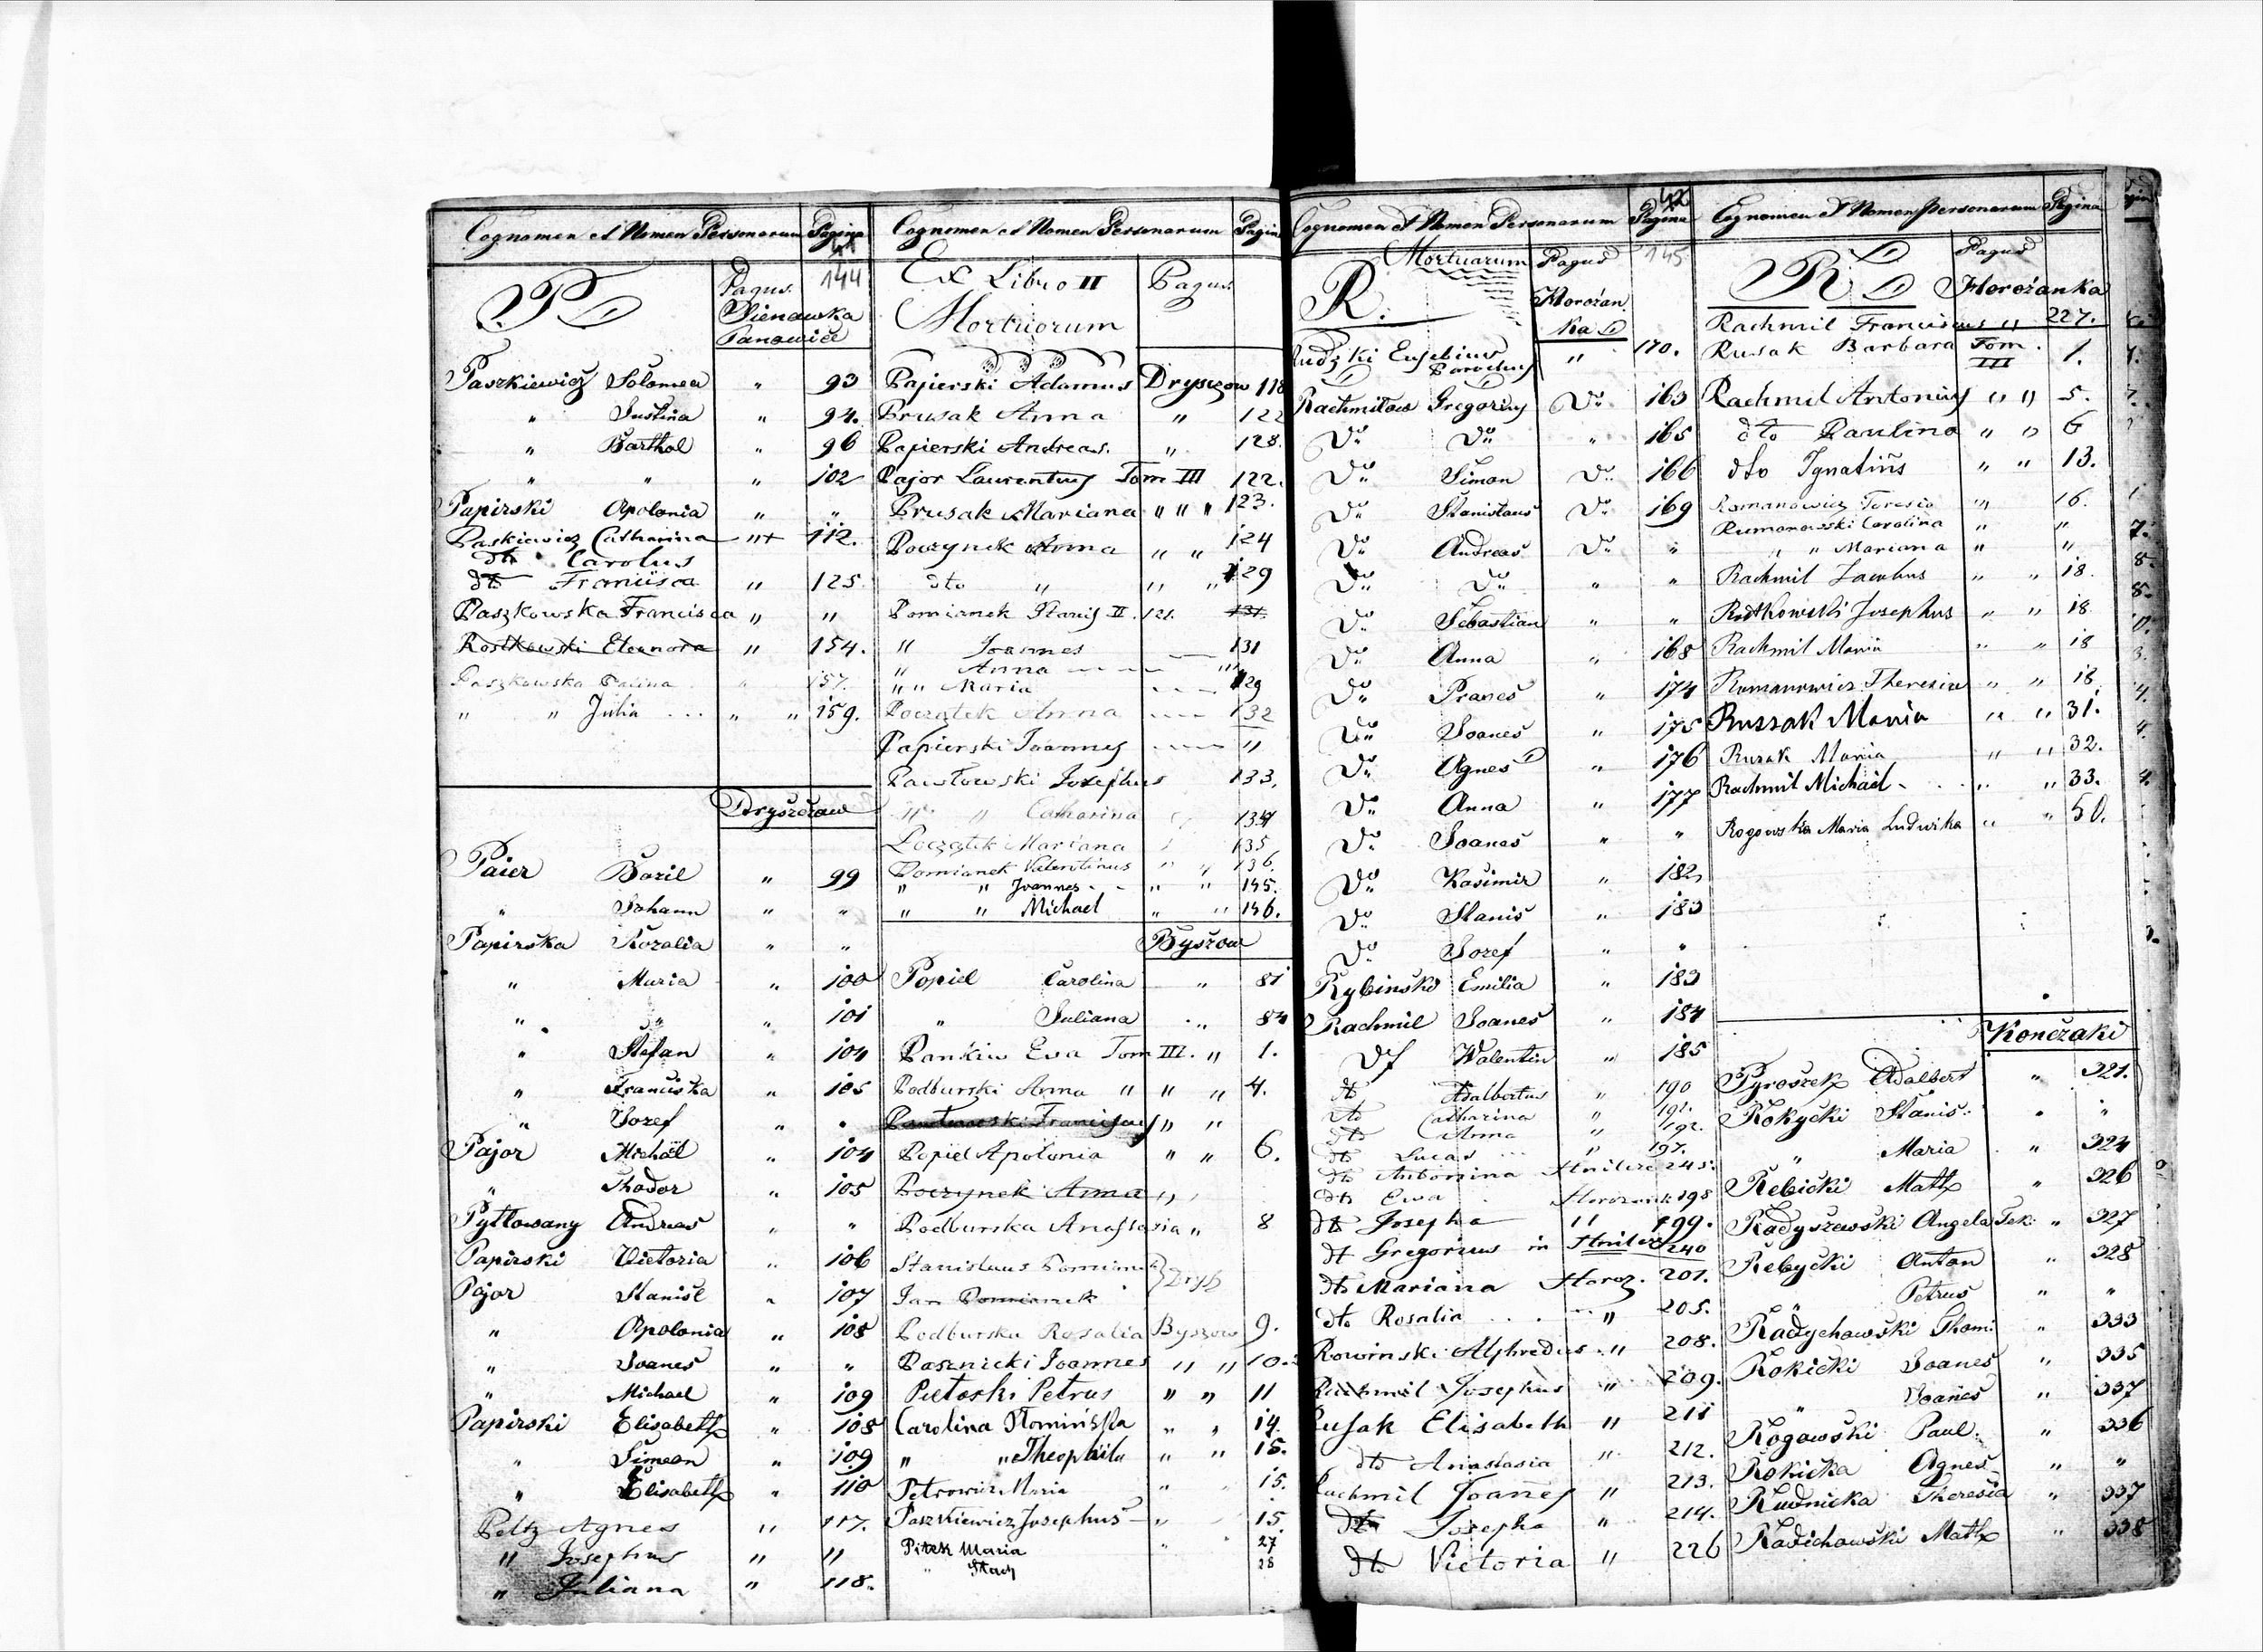 Cognomen et Nomen Personarum Pagina
144
P Pagus
Sienawka
Panowice
Paszkiewicz Solomea " 93
" Justina " 94.
" Barthol " 96
" " " 102
Papirski Apolonia " "
Paskiewicz Catharina 112.
dto Carolus
dto Francisca " 125.
Paszkowska Francisca " "
Rostkowski Eleonora " 154.
Paszkowska Paulina 157.
" " Julia ... " " 159.
Dryszczow
Paier Bazil " 99
" Johann " "
Papirska Rozalia " "
" Maria " 100
" " " 101
" Stefan " 104
" Franciska " 105
" Jozef "
Pajor Michäl " 104
" Thodor " 105
Pytlowany Andreas " "
Papirski Victoria " 106
Pajor Stanisl " 107
" Apolonia " 108
" Joanes " "
" Michael " 109
Papirski Elisabeth " 108
" Simeon " 109
" Elisabeth " 110
Peltz Agnes " 117.
" Josephus " "
" Juliana " 118.
Cognomen et Nomen Personarum Pagina
Ex Libro II Pagus
Mortuorum
Papierski Adamus Dryszow 118
Prusak Anna " 122
Papierski Andreas. " 128.
Pajor Laurentius Tom III 122.
Prusak Mariana " " " 123.
Poczynek Anna " " 124
dto " " " 129
Pomianek Stanis II. 121. 131.
" Joannes 131
" Anna "
" " Maria 129
Początek Anna 132
Papierski Joannes "
Pawłowski Josephus 133.
" " Catharina 134
Początek Mariana 135
Pomianek Valentinus " " 136.
" " Joannes - - " " 145.
" " Michael " " 146.
Byszow
Popiel Carolina " 81
" Juliana " 84
Pankiw Eva Tom III. " 1.
Podburski Anna " " " 4.
Franciscus " "
Popiel Apolonia " " 6.
Poczynek Anna " "
Podburska Anastasia " 8
Stanislaus Pomianek
Jan Pomianek
Podburska Rosalia Byszow 9.
Pasznicki Joannes " " 10.
Pietoski Petrus " " 11
Carolina Słomińska " " 14
" " Theophila " " 15.
Petrowicz Maria " " 15.
Paszkiewicz Josephus " 15.
Pitek Maria " 27
" Stach 28
Cognomen et Nomen Personarum Pagina
42
145
R. Mortuarum Pagus
Horożan
ka
Rudzki Eusebius " 170.
Rachmilow Gregorius Do 163
Do Do " 165
Do Simon Do 166
Do Stanislaus Do 169
Do Andreas Do "
Do Do " "
Do Sebastian " "
Do Anna " 168
Do Franes " 174
Do Joanes " 175
Do Agnes " 176
Do Anna " 177
Do Joanes " "
Do Kasimir " 182
Do Stanis " 183
Do Jozef " "
Rybinski Emilia " 183
Rachmil Joanes " 184
Do Walentin " 185
dto Adalbertus " 190
dto Catharina " 192.
dto Anna " 192.
dto Lucas ... " 197.
dto Antonina Hnilcze 245.
dto Ewa Horozanka 198
dto Josepha " " 199.
dto Gregorius in Hnilcze 240
dto Mariana Horoz. 201.
dto Rosalia . . . " 205.
Rowinski Alphredus " 208.
Rachmil Josephus " 209.
Rusak Elisabeth " 211
dto Anastasia " 212.
Rachmil Joanes " 213.
dto Josepha " 214.
dto Victoria " 226
Cognomen et Nomen personarum Pagina
R Pagus
Horożanka
Rachmil Franciscus " 227.
Rusak Barbara Tom. III 1.
Rachmil Antonius " " 5.
dto Paulina " " 6
dto Ignatius " " 13.
Romanowicz Teresia " " 16.
Rumanowski Carolina " "
" " Mariana " "
Rachmil Jacobus " " 18.
Rutkowski Josephus " " 18
Rachmil Maria " " 18
Rumanowicz Theresia " " 18
Russak Maria " " 31.
Rusak Maria " " 32.
Rachmil Michael - . . " " 33.
Rogowska Maria Ludwika " " 50.
Kończaki
Pyroszek Adalbert " 321.
Rokycki Stanis. " "
" Maria " 324
Rebicki Math " 326
Radyszewski Angela Tek. " 327
Rebycki Anton " 328
" Petrus " "
Radychowski Thom. " 333
Rokicki Joanes " 335
" Joanes " 337
Rogowski Paul. " 336
Rokicka Agnes " "
Rudnicka Theresia " 337
Radichowski Math " 338